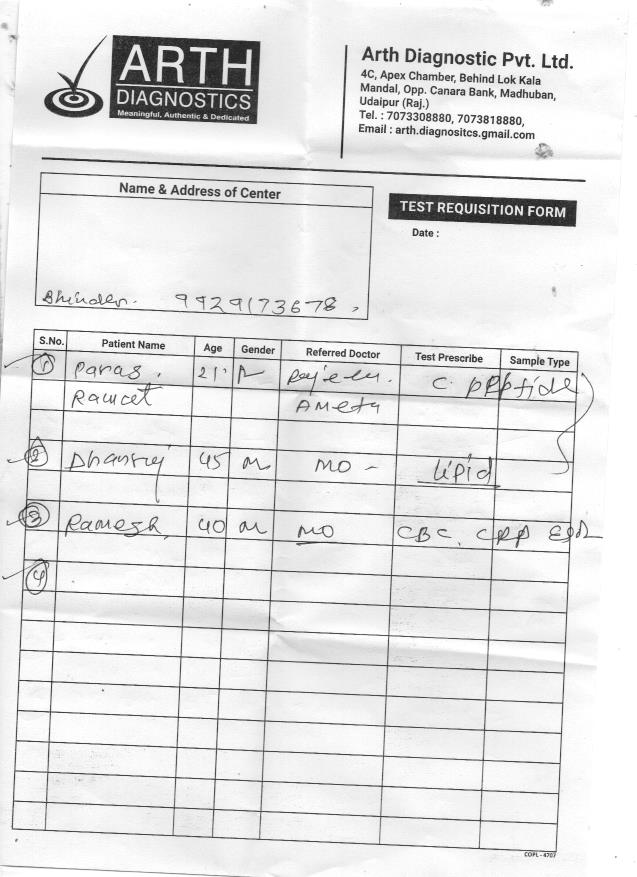 ARTH
DIAGNOSTICS
Meaningful, Authentic & Dedicated
Arth Diagnostic Pvt. Ltd.
4C, Apex Chamber, Behind Lok Kala
Mandal, Opp. Canara Bank, Madhuban,
Udaipur (Raj.)
Tel. : 7073308880, 7073818880,
Email : arth.diagnositcs.gmail.com
Name & Address of Center
TEST REQUISITION FORM
Date :
Bhinder. 9929173678,
S.No. Patient Name Age Gender Referred Doctor Test Prescribe Sample Type
1 Paras. 21 C. PEPtide
Ameta
2 Dhanraj 45 M MO - Lipid
3 Ramesh, 40 M MO CBC, CRP ESR
4
COPL - 4707